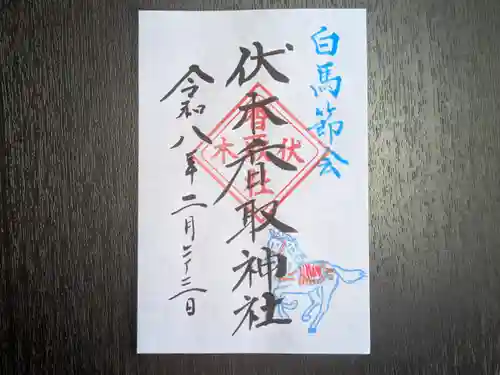 白馬節会
伏木香取神社
令和八年二月二十三日
伏木
香取社